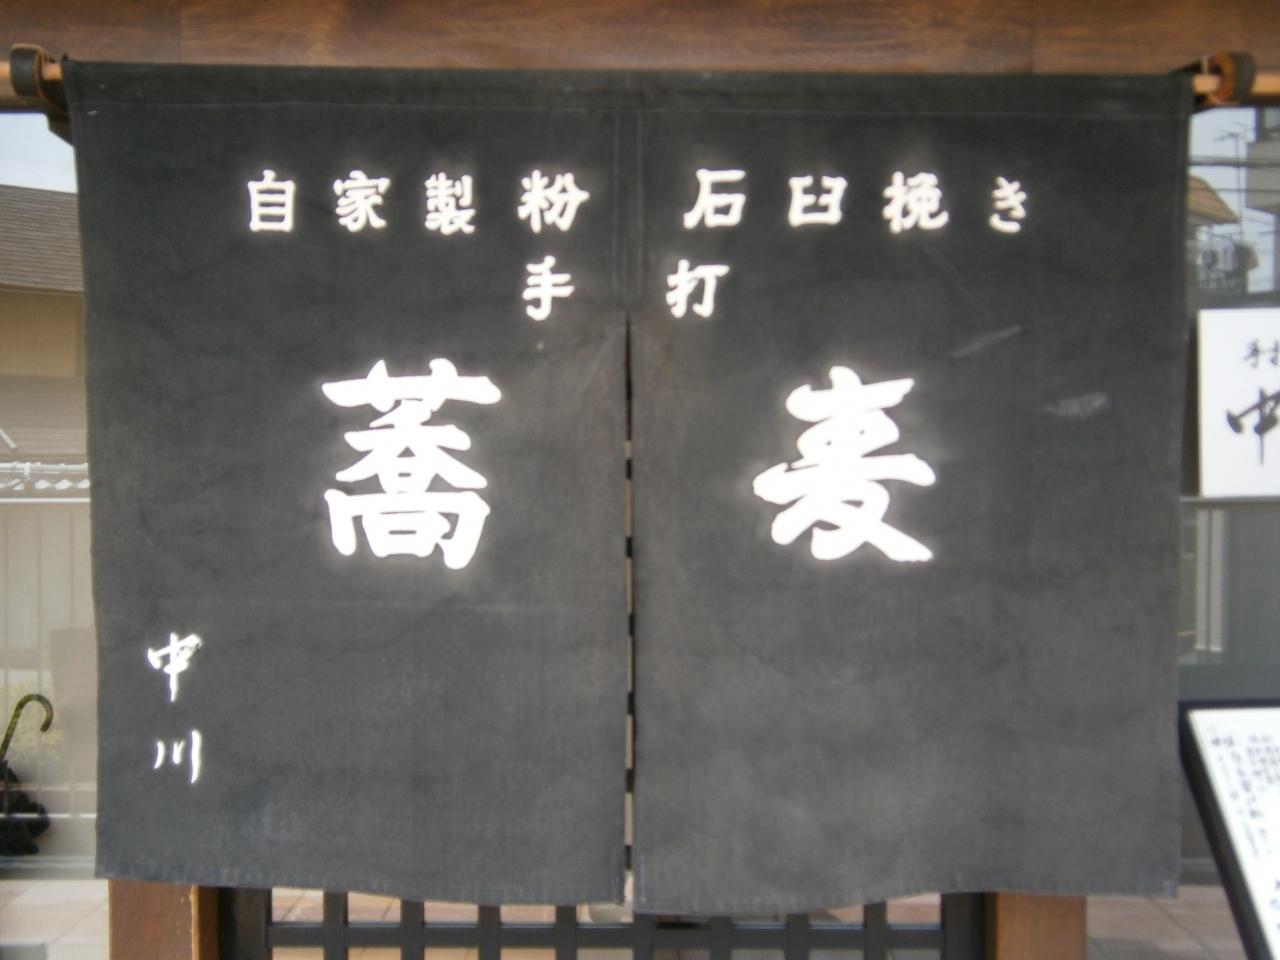 自家製粉 石臼挽き
手打
蕎麦
中川
手打
中